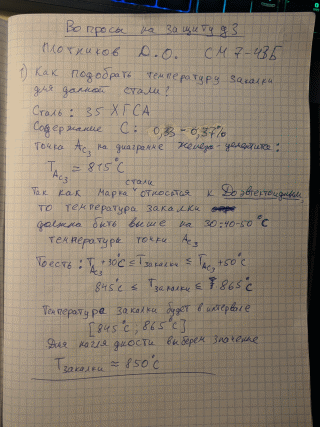 Вопросы на защиту дз
Плотников Д.О. СМ7-43Б
1) Как подобрать температуру закалки
для данной стали?
Сталь: 35 ХГСА
Содержание С: 0,33 - 0,37%
точка Ac3 на диаграмме железо-цементита:
TAc3 ≈ 815°C
стали
Так как марка относится к Доэвтектоидным,
то температура закалки
должна быть выше на 30-50°C
температуры точки Ac3
Тоесть: TAc3 +30°C ≤ Tзакалки ≤ TAc3 +50°C
845°C ≤ Tзакалки ≤ 865°C
Температура закалки будет в интервале
[845°C; 865°C]
Для наглядности выберем значение
Tзакалки ≈ 850°C